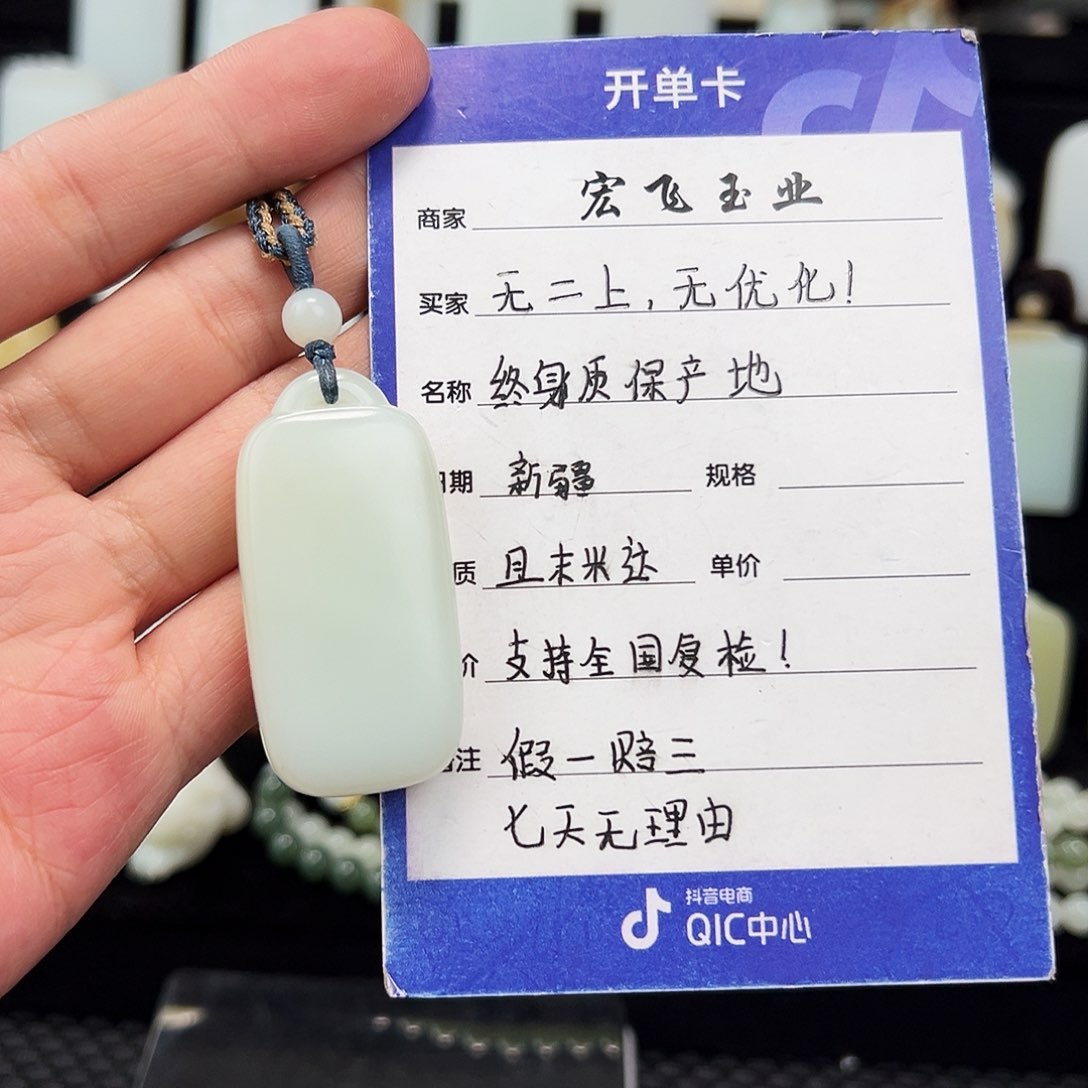 开单卡
商家 宏飞玉业
买家 无二上，无优化！
名称 终身质保产地
日期 新疆 规格
质 且末米达 单价
价 支持全国复检！
备注 假一赔三
七天无理由
抖音电商
QIC中心